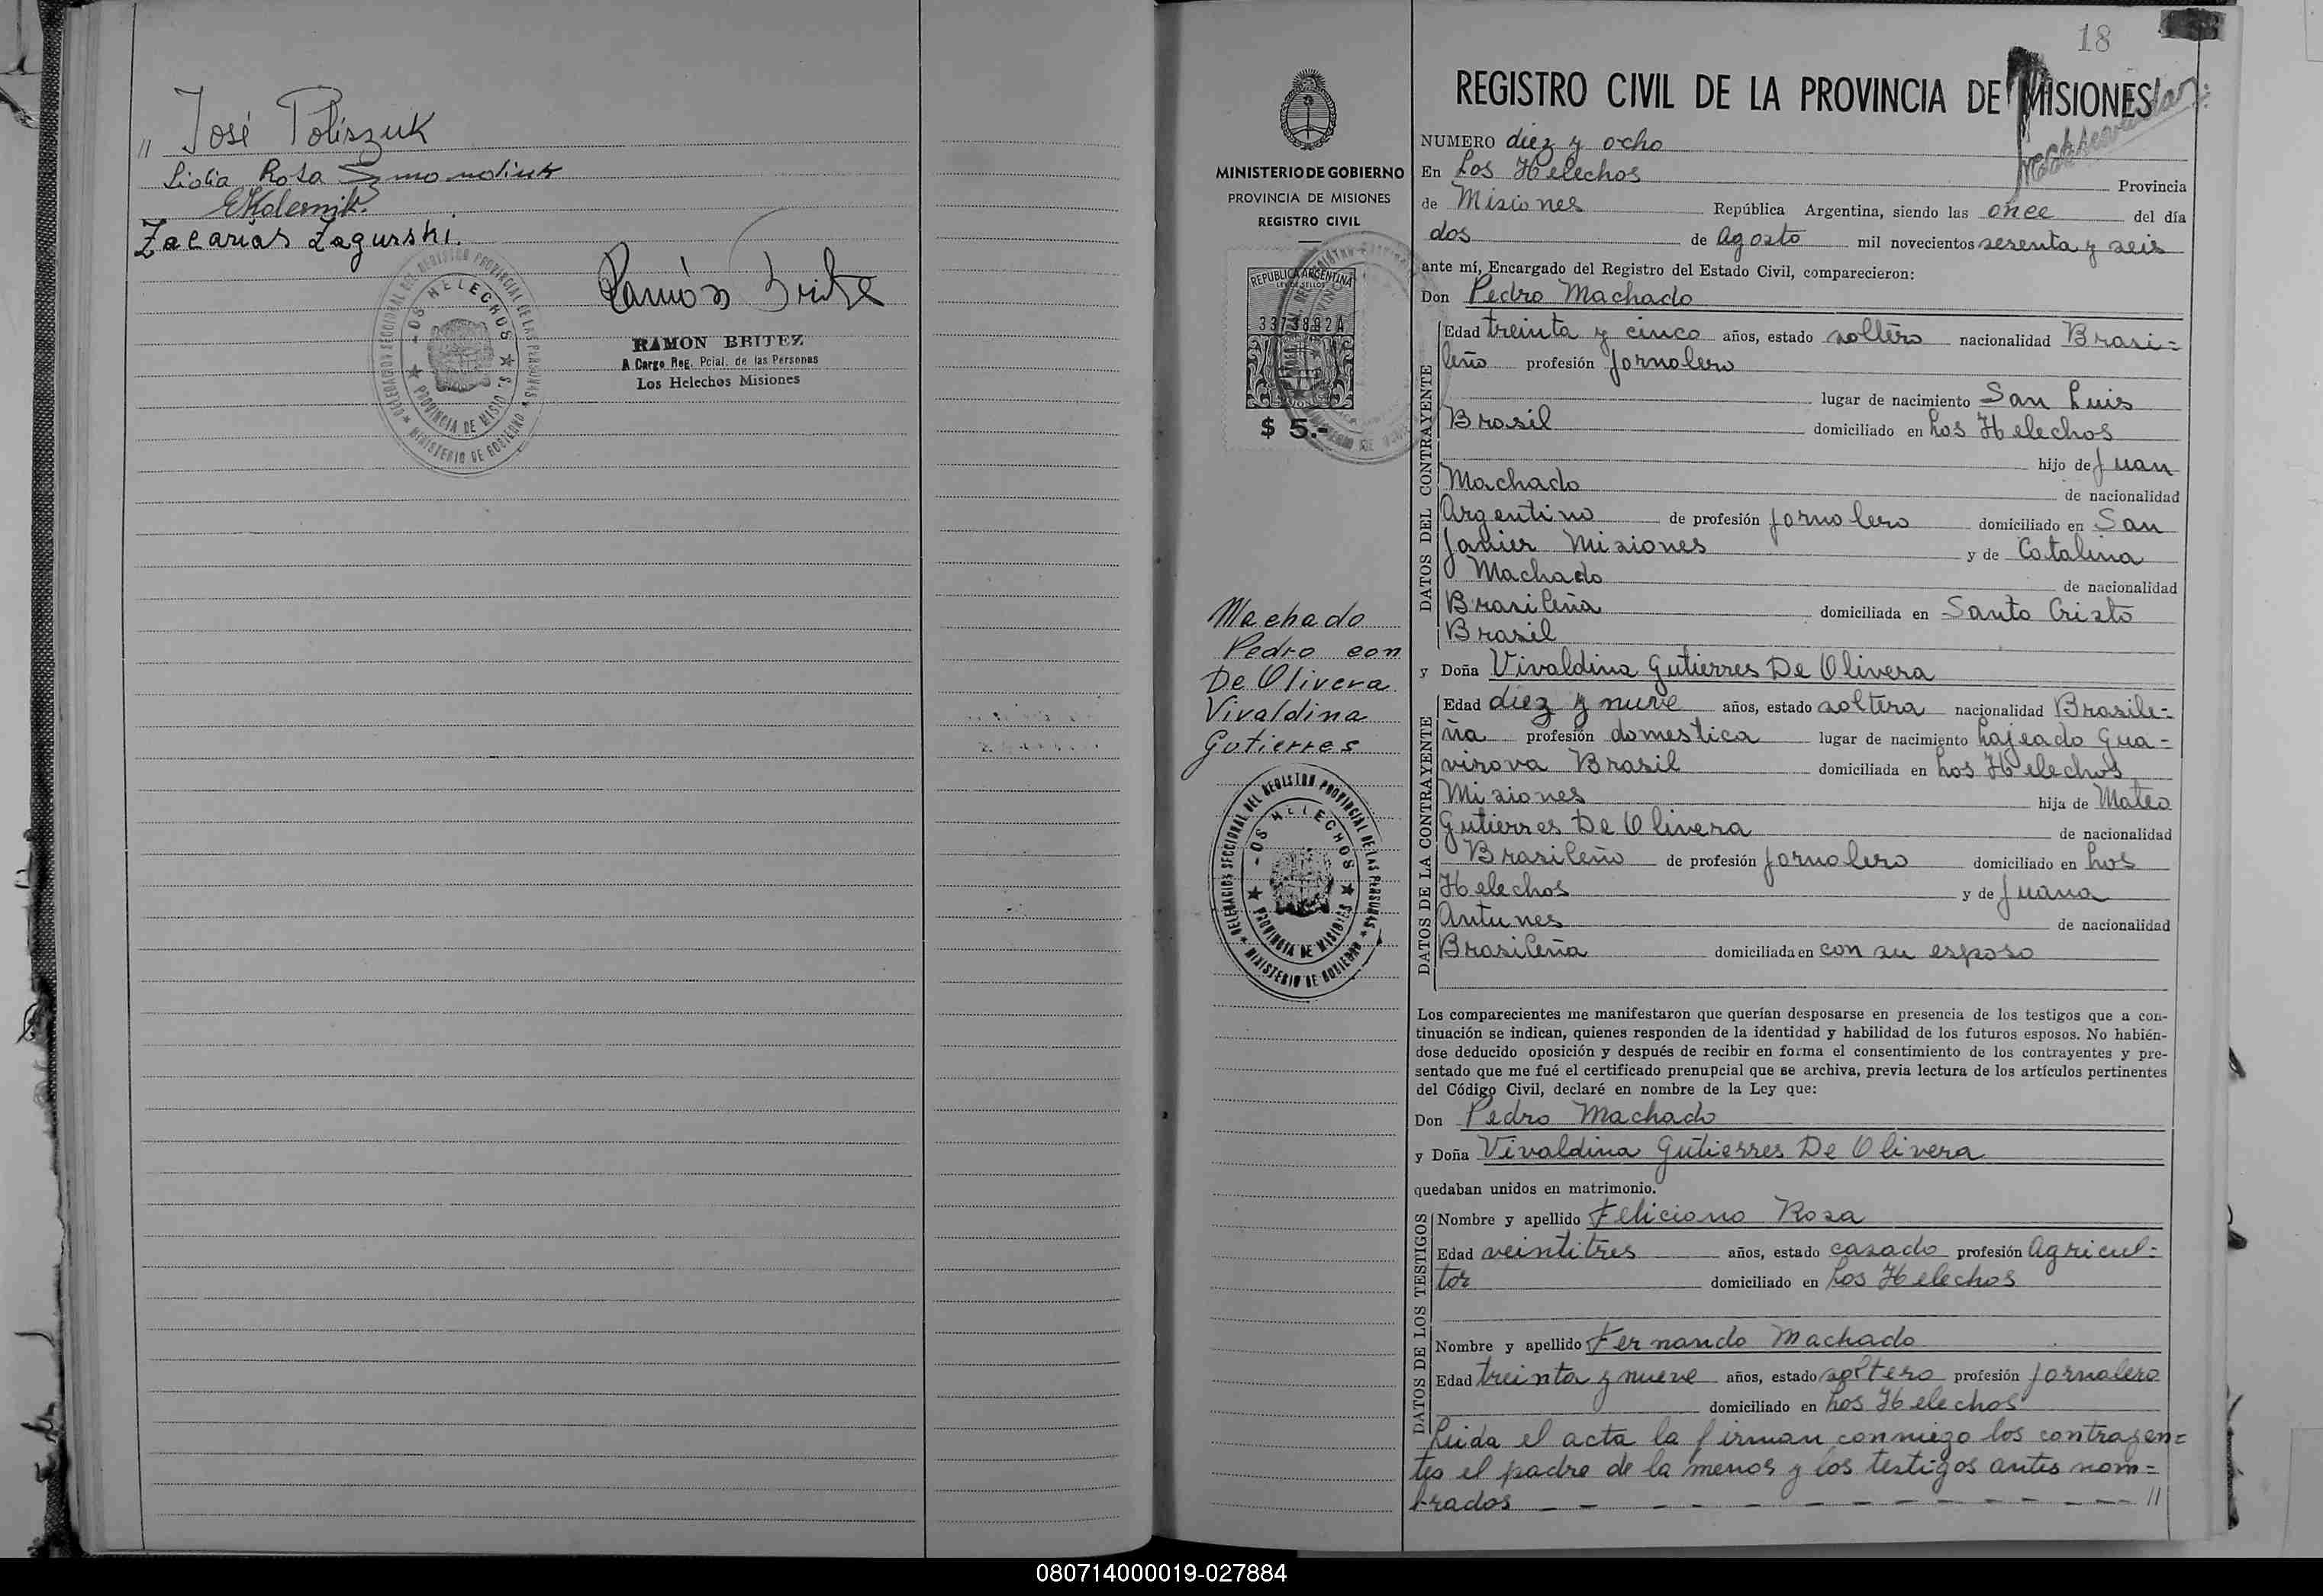 " José Poliszuk
Lidia Rosa
Zacarias Zagurski.
Ramón Britez
RAMON BRITEZ
A Cargo Reg. Pcial. de las Personas
Los Helechos Misiones
DELEGACION SECCIONAL DEL REGISTRO PROVINCIAL DE LAS PERSONAS
LOS HELECHOS
PROVINCIA DE MISIONES
MINISTERIO DE GOBIERNO
18
MINISTERIO DE GOBIERNO
PROVINCIA DE MISIONES
REGISTRO CIVIL
REPUBLICA ARGENTINA
LEY DE SELLOS
$ 5.-
Machado
Pedro con
De Olivera
Vivaldina
Gutierres
DELEGACION SECCIONAL DEL REGISTRO PROVINCIAL DE LAS PERSONAS
LOS HELECHOS
PROVINCIA DE MISIONES
MINISTERIO DE GOBIERNO
REGISTRO CIVIL DE LA PROVINCIA DE MISIONES
NUMERO diez y ocho
En Los Helechos Provincia
de Misiones República Argentina, siendo las once del día
dos de Agosto mil novecientos sesenta y seis
ante mí, Encargado del Registro del Estado Civil, comparecieron:
Don Pedro Machado
DATOS DEL CONTRAYENTE
Edad treinta y cinco años, estado soltero nacionalidad Brasi=
leño profesión Jornalero
lugar de nacimiento San Luis
Brasil domiciliado en Los Helechos
hijo de Juan
Machado de nacionalidad
Argentino de profesión Jornalero domiciliado en San
Javier Misiones y de Catalina
Machado de nacionalidad
Brasileña domiciliada en Santo Cristo
Brasil
y Doña Vivaldina Gutierres De Olivera
DATOS DE LA CONTRAYENTE
Edad diez y nueve años, estado soltera nacionalidad Brasile=
ña profesión domestica lugar de nacimiento Lajeado Gua=
virova Brasil domiciliada en Los Helechos
Misiones hija de Mateo
Gutierres De Olivera de nacionalidad
Brasileño de profesión Jornalero domiciliado en Los
Helechos y de Juana
Antunes de nacionalidad
Brasileña domiciliada en con su esposo
Los comparecientes me manifestaron que querían desposarse en presencia de los testigos que a con-
tinuación se indican, quienes responden de la identidad y habilidad de los futuros esposos. No habién-
dose deducido oposición y después de recibir en forma el consentimiento de los contrayentes y pre-
sentado que me fué el certificado prenupcial que se archiva, previa lectura de los artículos pertinentes
del Código Civil, declaré en nombre de la Ley que:
Don Pedro Machado
y Doña Vivaldina Gutierres De Olivera
quedaban unidos en matrimonio.
DATOS DE LOS TESTIGOS
Nombre y apellido Feliciano Rosa
Edad veintitres años, estado casado profesión Agricul=
tor domiciliado en Los Helechos
Nombre y apellido Fernando Machado
Edad treinta y nueve años, estado soltero profesión Jornalero
domiciliado en Los Helechos
Leida el acta la firman conmigo los contrayen=
tes el padre de la menor y los testigos antes nom=
brados — — — — — — — — — — — "
080714000019-027884